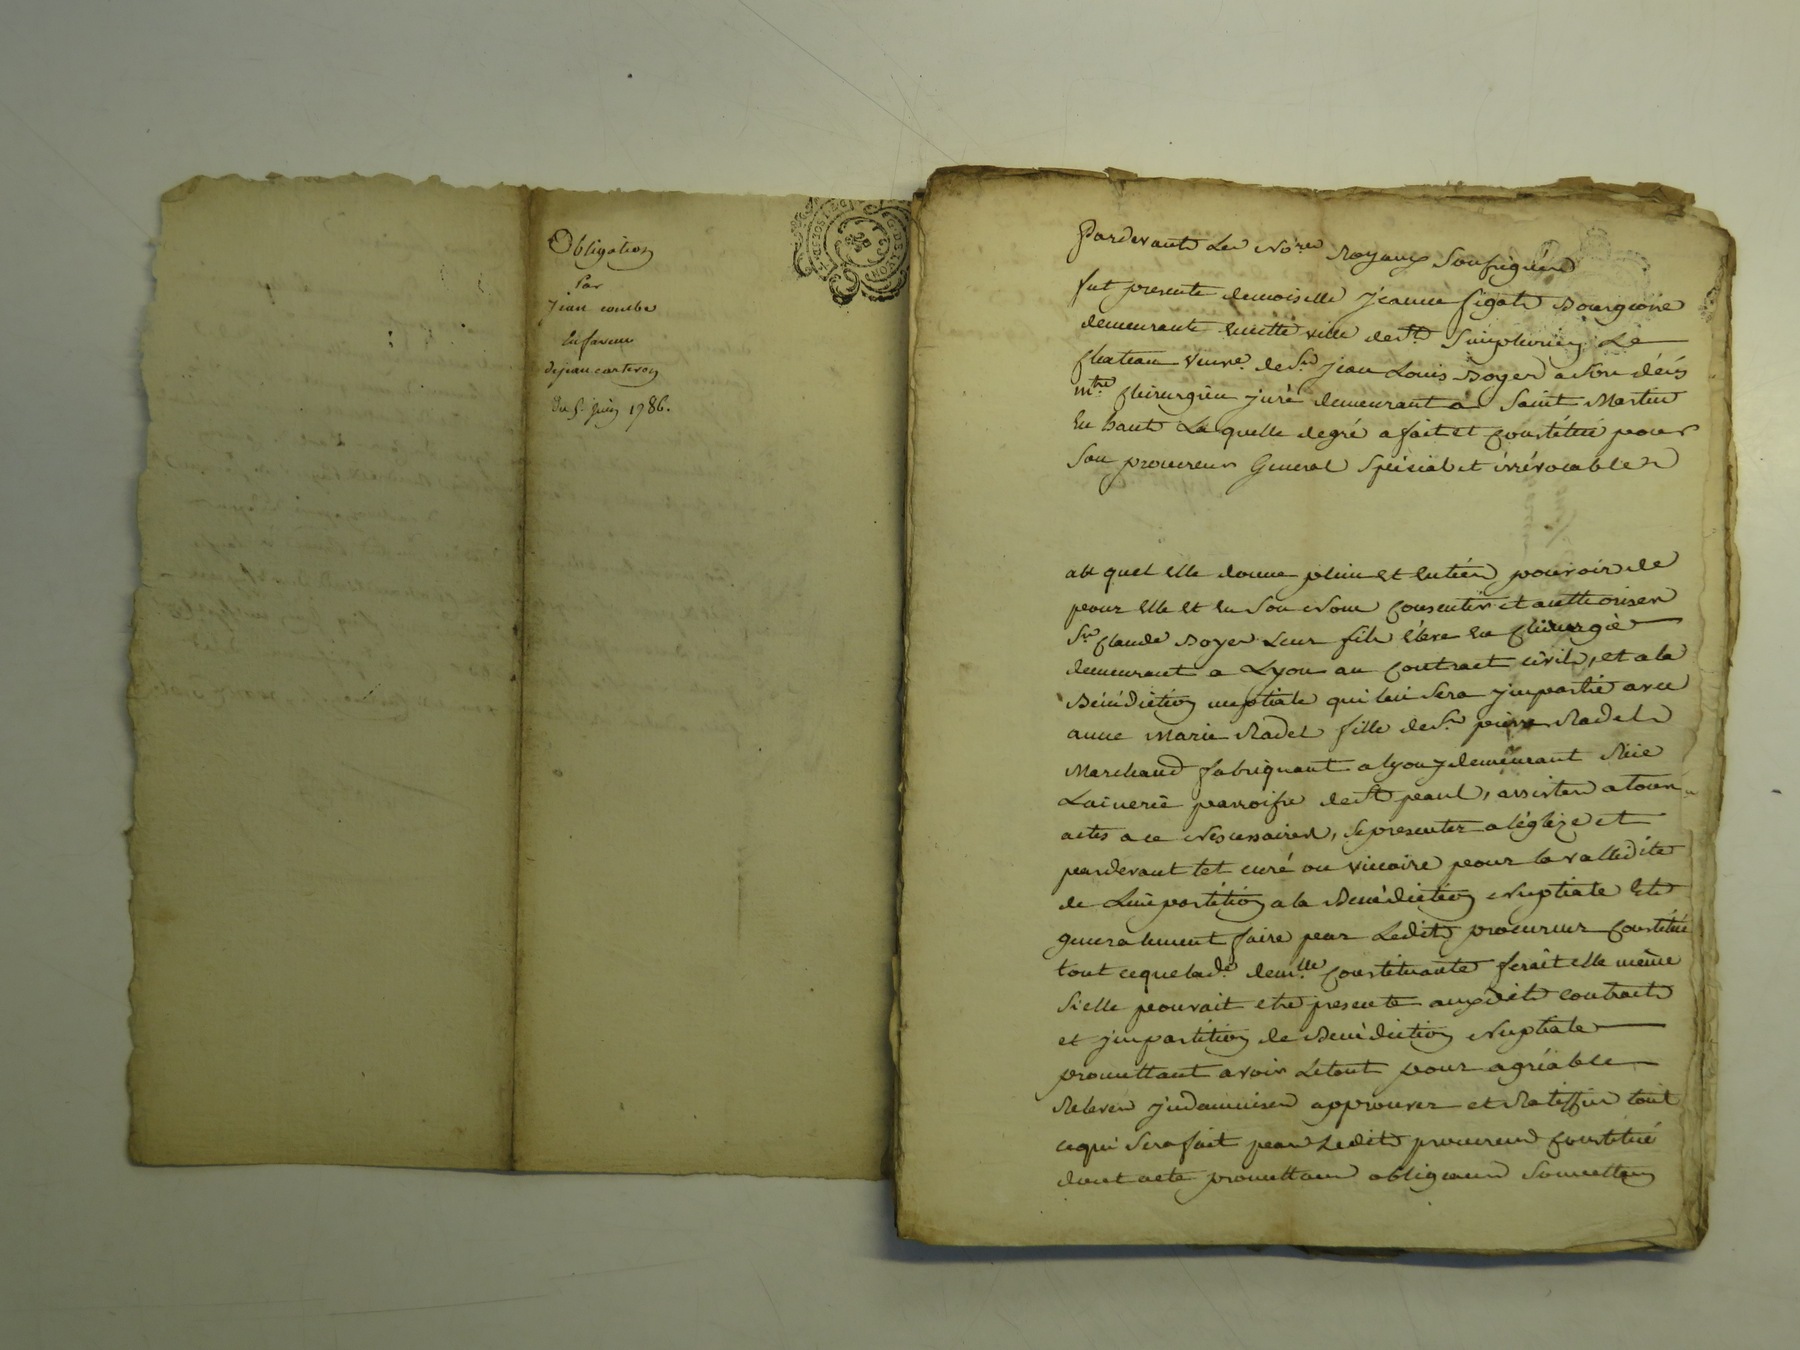 Obligation
Par
jean combe
En faveur
de jean carteron
Du 5e juin 1786.
Pardevant Les No.res Royaux Soussignés
fut presente demoiselle jeanne figat Bourgeoise
demeurante en cette ville de St. Simphorien Le
chateau veuve de Sr. jean Louis Boyer a son décès
m.tre chirurgien juré demeurant a Saint Martin
En haut Laquelle degré a fait et constitué pour
Son procureur General Spécial et irrévocable
au quel elle donne plein et entier pouvoir de
pour Elle et en Son Nom consentir et authoriser
Sr. Claude Boyer Leur fils élève en chirurgie
demeurant a Lyon au contract civil, et a la
Bénédiction nuptiale qui lui sera jmpartie avec
anne Marie Radel fille de Sr. pierre Radel
Marchand fabriquant a lyon y demeurant Rüe
Lainerie parroisse de St paul, assister a tous
actes a ce Nescessaires, se presenter a léglize et
pardevant tel curé ou viccaire pour la vallidité
de Limpartition a la Benédiction Nuptiale Et
generalement faire par Ledit procureur constitué
tout ce que lad.e dem.lle constituante ferait elle même
Si elle pouvait etre presente auxdits contracts
et jmpartition de Benédiction Nuptiale
promettant avoir Le tout pour agréable
Relever jndamniser approuver et Ratiffier tout
ce qui Sera fait par Ledit procureur constitué
dont acte promettans obligeans Soumettans